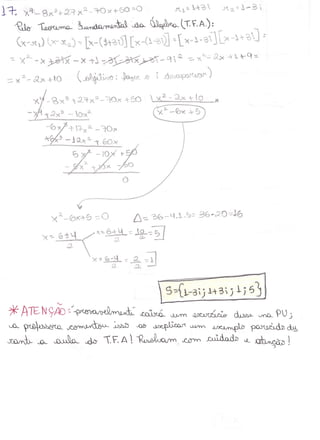 17. x⁴-8x³+27x²-70x+50=0 r₁=1+3i r₂=1-3i
Pelo Teorema Fundamental da Álgebra (T.F.A.):
(x-r₁)(x-r₂)=[x-(1+3i)][x-(1-3i)]=[x-1-3i][x-1+3i]=
=x²-x+3ix-x+1-3i-3ix+3i-9i²=x²-2x+1+9=
=x²-2x+10 (objetivo: fazer o i desaparecer)
x⁴-8x³+27x²-70x+50 x²-2x+10
-x⁴+2x³-10x² x²-6x+5
-6x³+17x²-70x
+6x³-12x²+60x
5x²-10x+50
-5x²+10x-50
0
x²-6x+5=0 Δ=36-4.1.5=36-20=16
x=6±4/2 x=6+4/2=10/2=5
x=6-4/2=2/2=1
S={1-3i;1+3i;1;5}
*ATENÇÃO: provavelmente cairá um exercício desse na PU;
a professora comentou isso ao explicar um exemplo parecido du
rante a aula do T.F.A! Resolvam com cuidado e atenção!